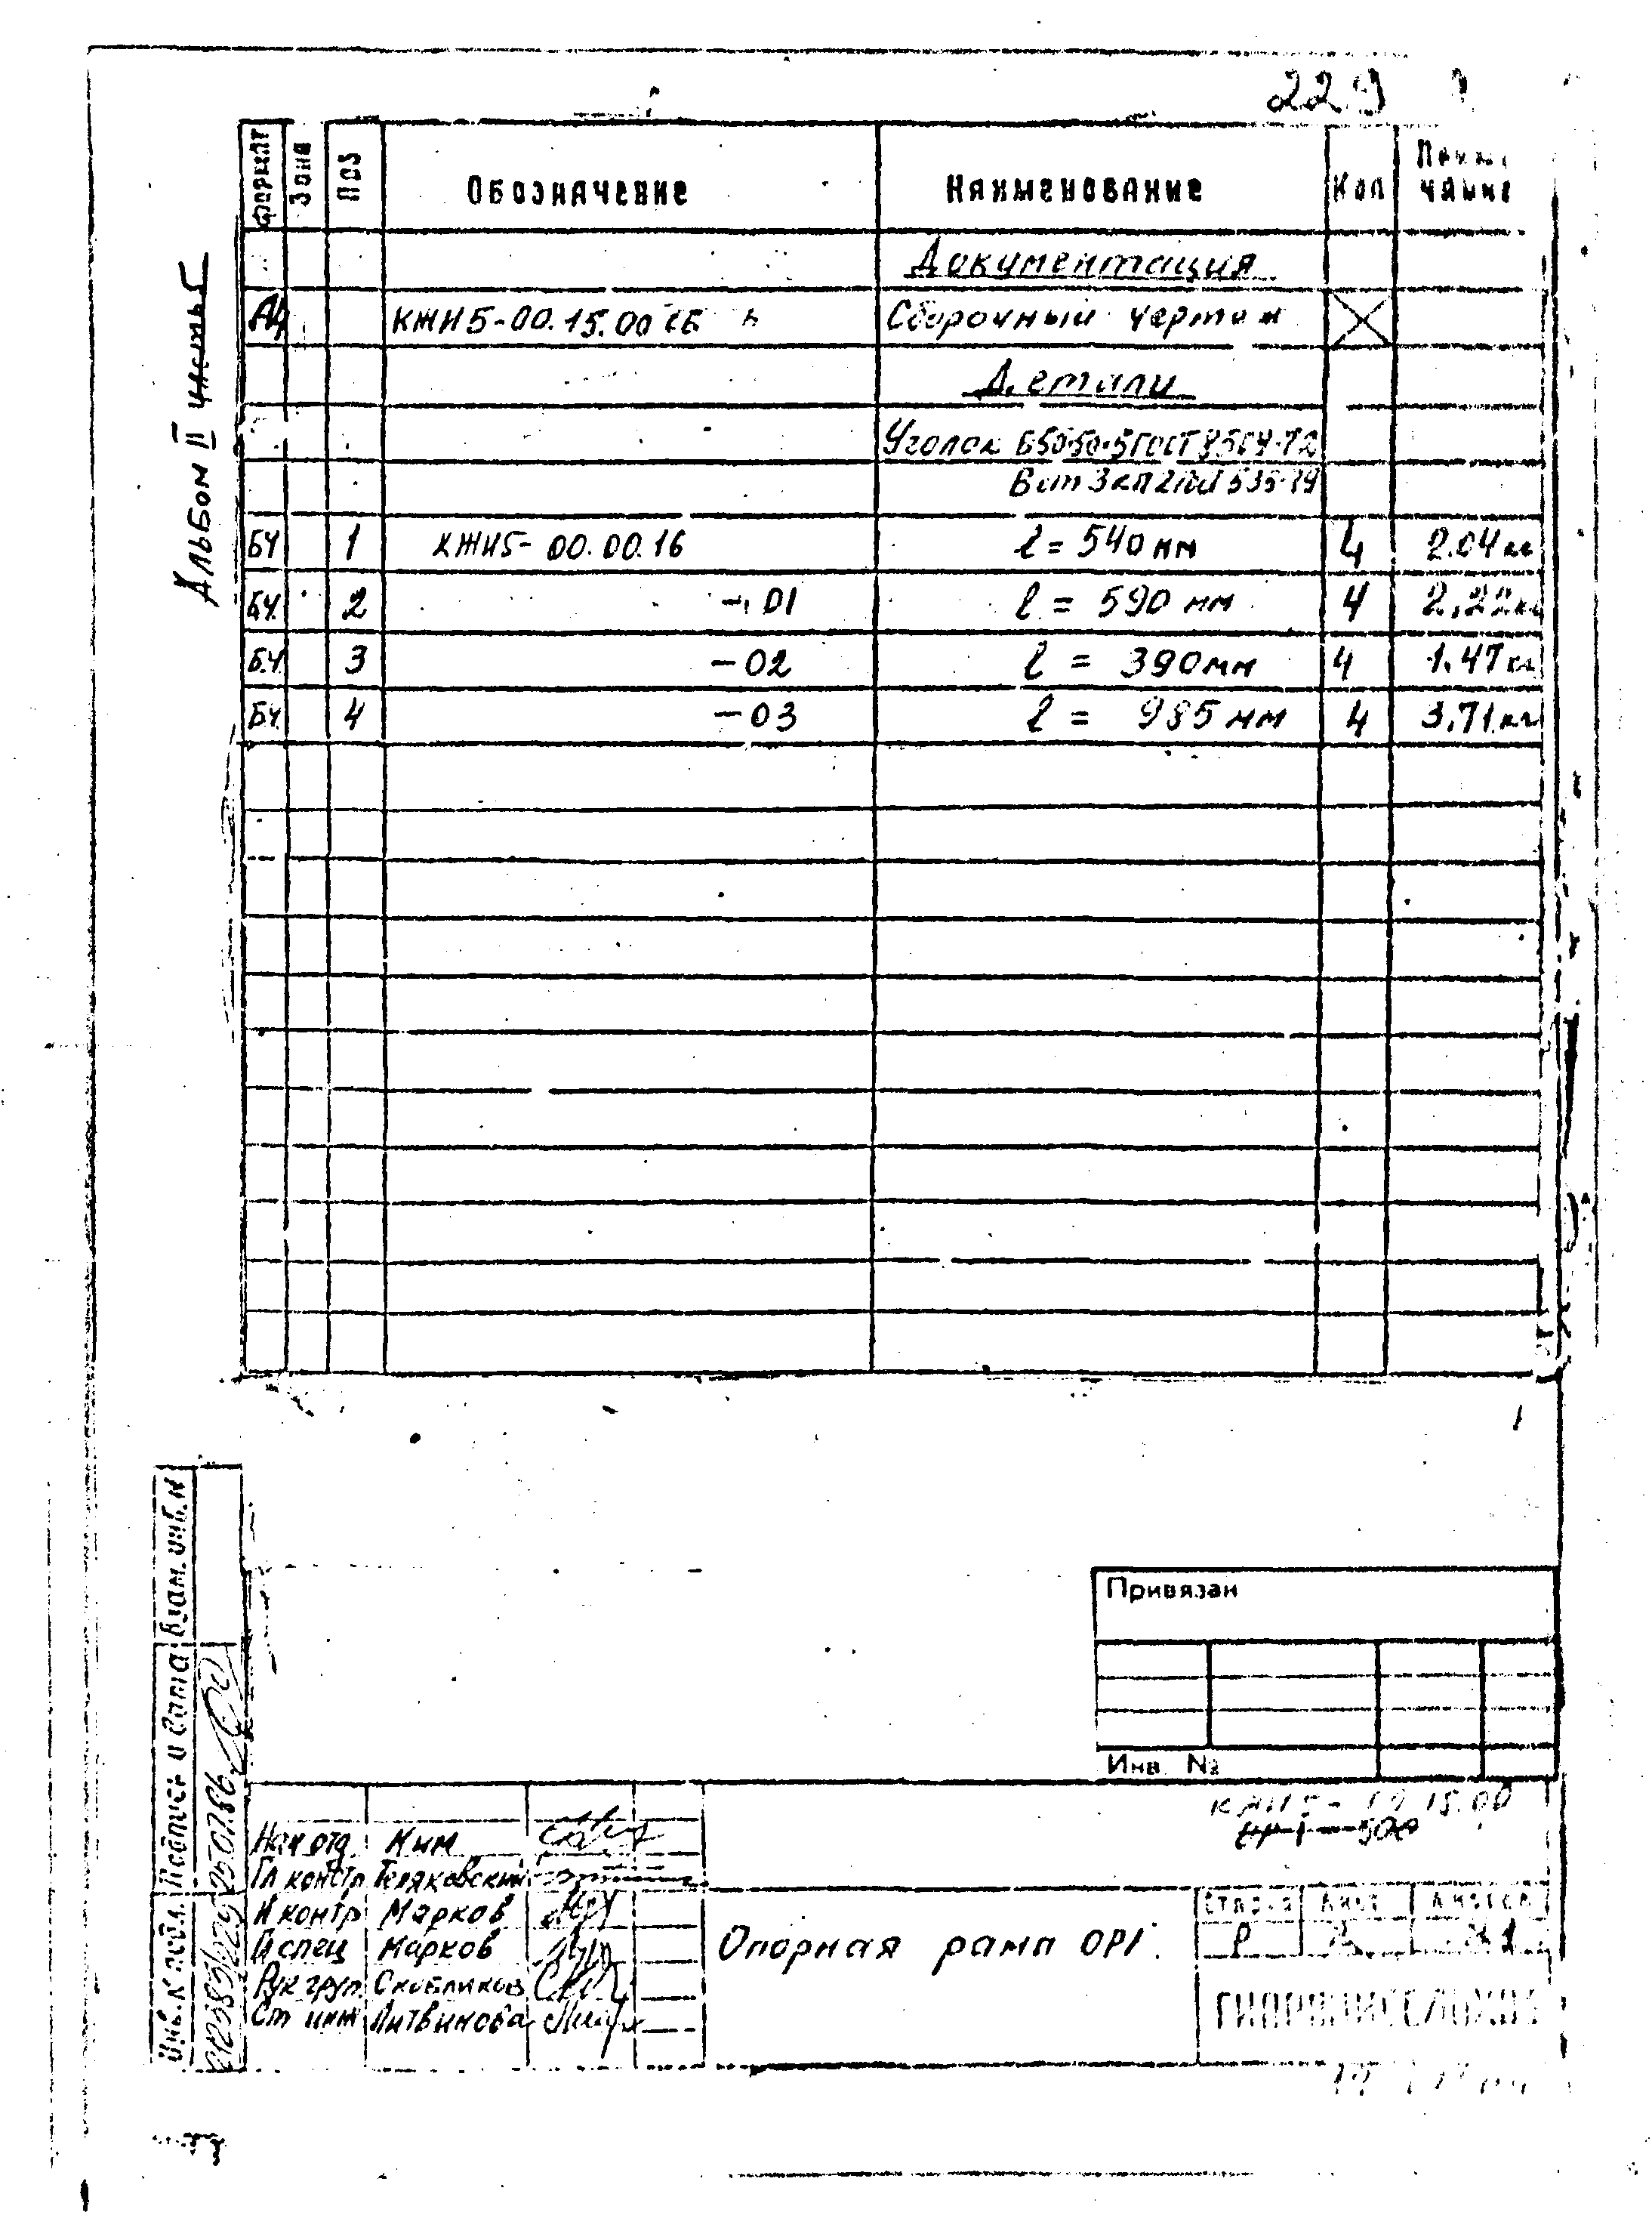 229
Формат Зона Поз Обозначение Наименование Кол Приме чание
Документация
А4 КЖИ5-00.15.00 СБ Сборочный чертеж
Детали
Уголок Б50·50·5 ГОСТ 8509-72
Вст3кп2 535-79
БЧ 1 КЖИ5-00.00.16 l = 540 мм 4 2.04 кг
БЧ. 2 -01 l = 590 мм 4 2.22 кг
БЧ 3 -02 l = 390 мм 4 1.47 кг
БЧ. 4 -03 l = 985 мм 4 3.71 кг
Альбом II часть 5
Взам. инв. N
Подпись и дата
Инв. N подл.
25.07.86
Привязан
Инв. №
15.00
Нач отд Ким
Гл констр Теляковский
Н контр Марков
Гл спец Марков
Рук груп Скобликов
Ст инж Литвинова
Опорная рама ОР1
Стадия Лист Листов
Р 1